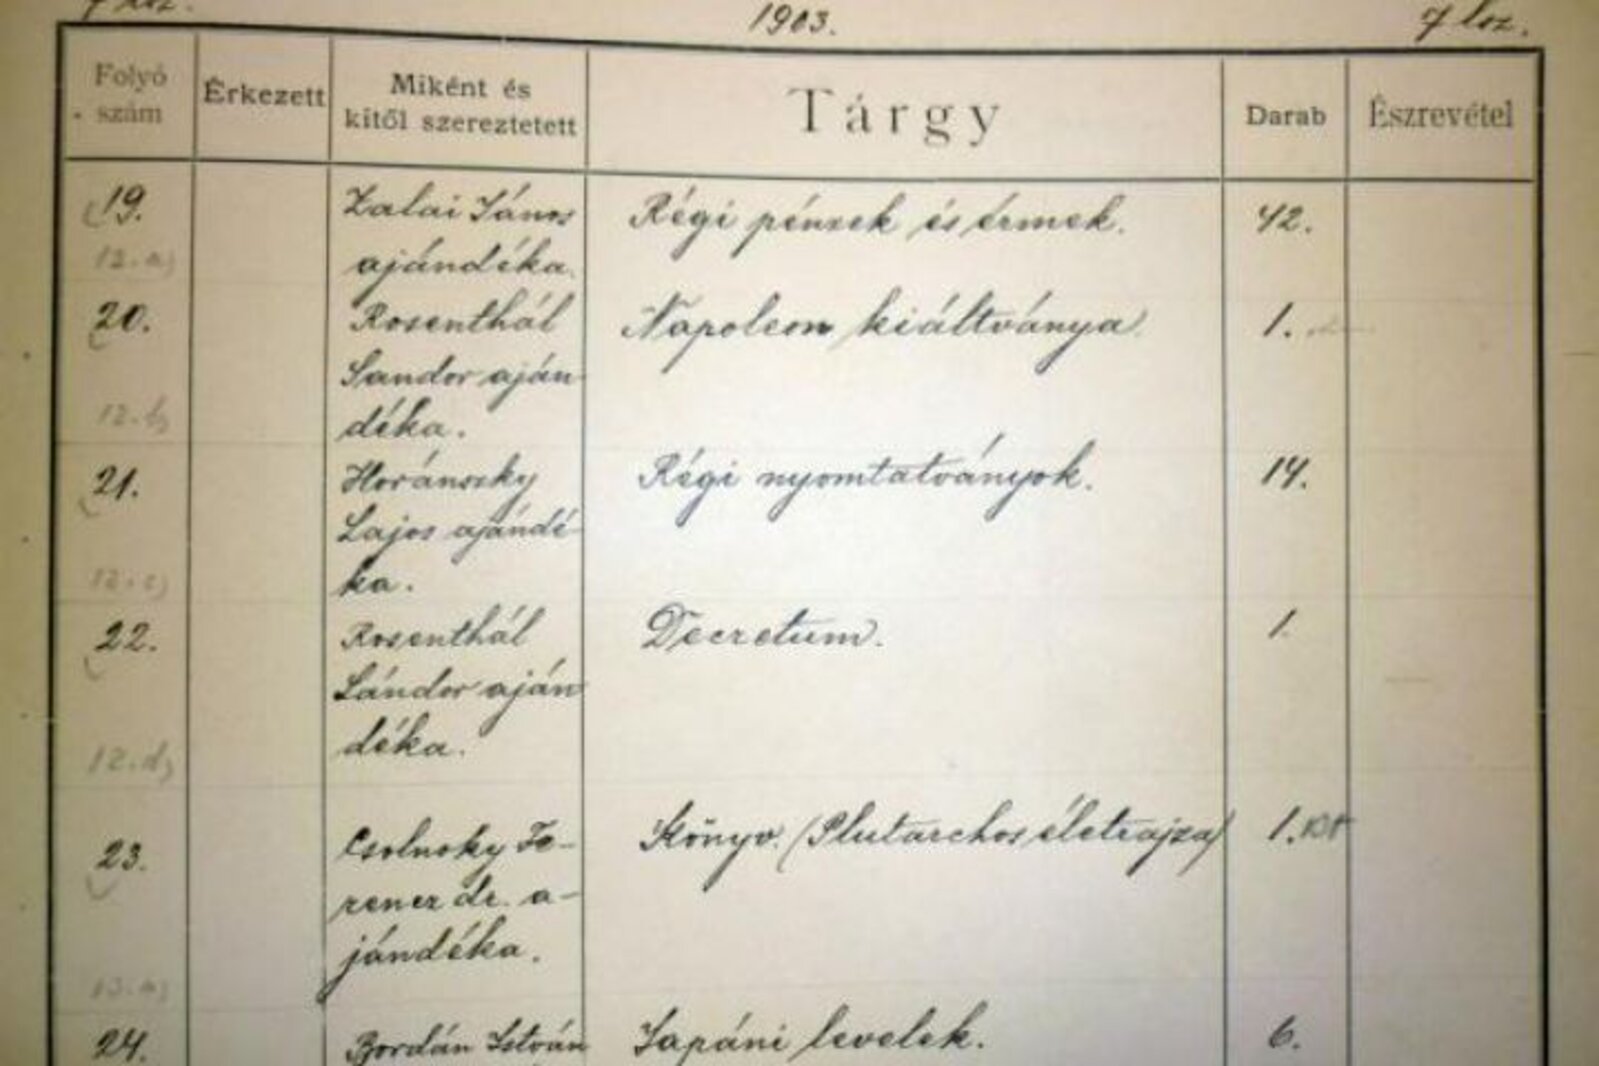 1903. 7 lsz.
Folyó szám Érkezett Miként és kitől szereztetett Tárgy Darab Észrevétel
19. Zalai János Régi pénzek és érmek. 42.
12.a) ajándéka.
20. Rosenthál Napoleon kiáltványa 1.
Sandor aján
12.b) déka.
21. Horánszky Régi nyomtatványok. 14.
Lajos ajándé-
12.c) ka.
22. Rosenthál Decretum. 1.
Sándor aján
12.d) déka.
23. Csolnoky Fe- Könyv. (Plutarchos életrajza) 1.
rencz dr. a-
jándéka.
13.a)
24. Bordán István Japáni levelek. 6.